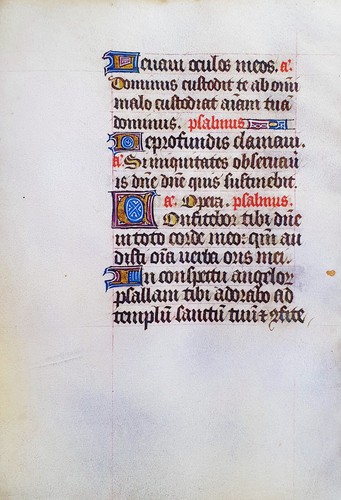 Leuaui oculos meos. a͂.
Dominus custodit te ab om̄i
malo custodiat aīam tuā
dominus. psalmus
De profundis clamaui.
a͂. Si iniquitates obseruau
is dn̄e dn̄e quis sustinebit.
a͂. Opera. psalmus.
Confitebor tibi dn̄e
in toto corde meo: qm̄ au
disti oīa uerba oris mei.
In conspectu angelor
psallam tibi adorabo ad
templū sanctū tuū ⁊ ꝯfite